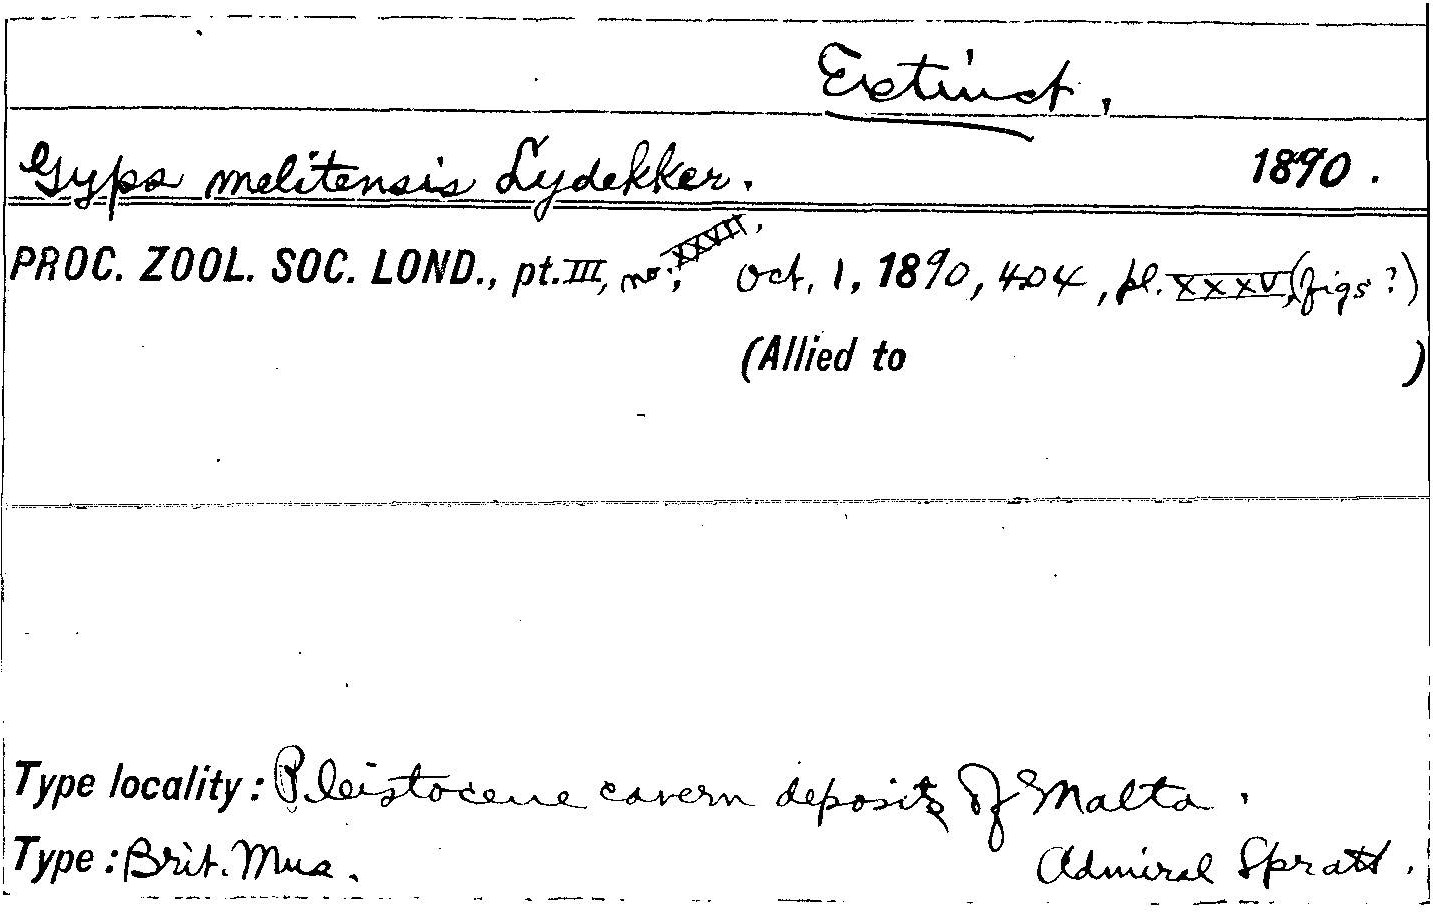 Extinct.
Gyps melitensis Lydekker. 1890.
PROC. ZOOL. SOC. LOND., pt. III, no. XXVII, Oct. 1, 1890, 404, pl. XXXV, (figs?)
(Allied to )
Type locality: Pleistocene cavern deposits of Malta.
Type: Brit. Mus. Admiral Spratt.